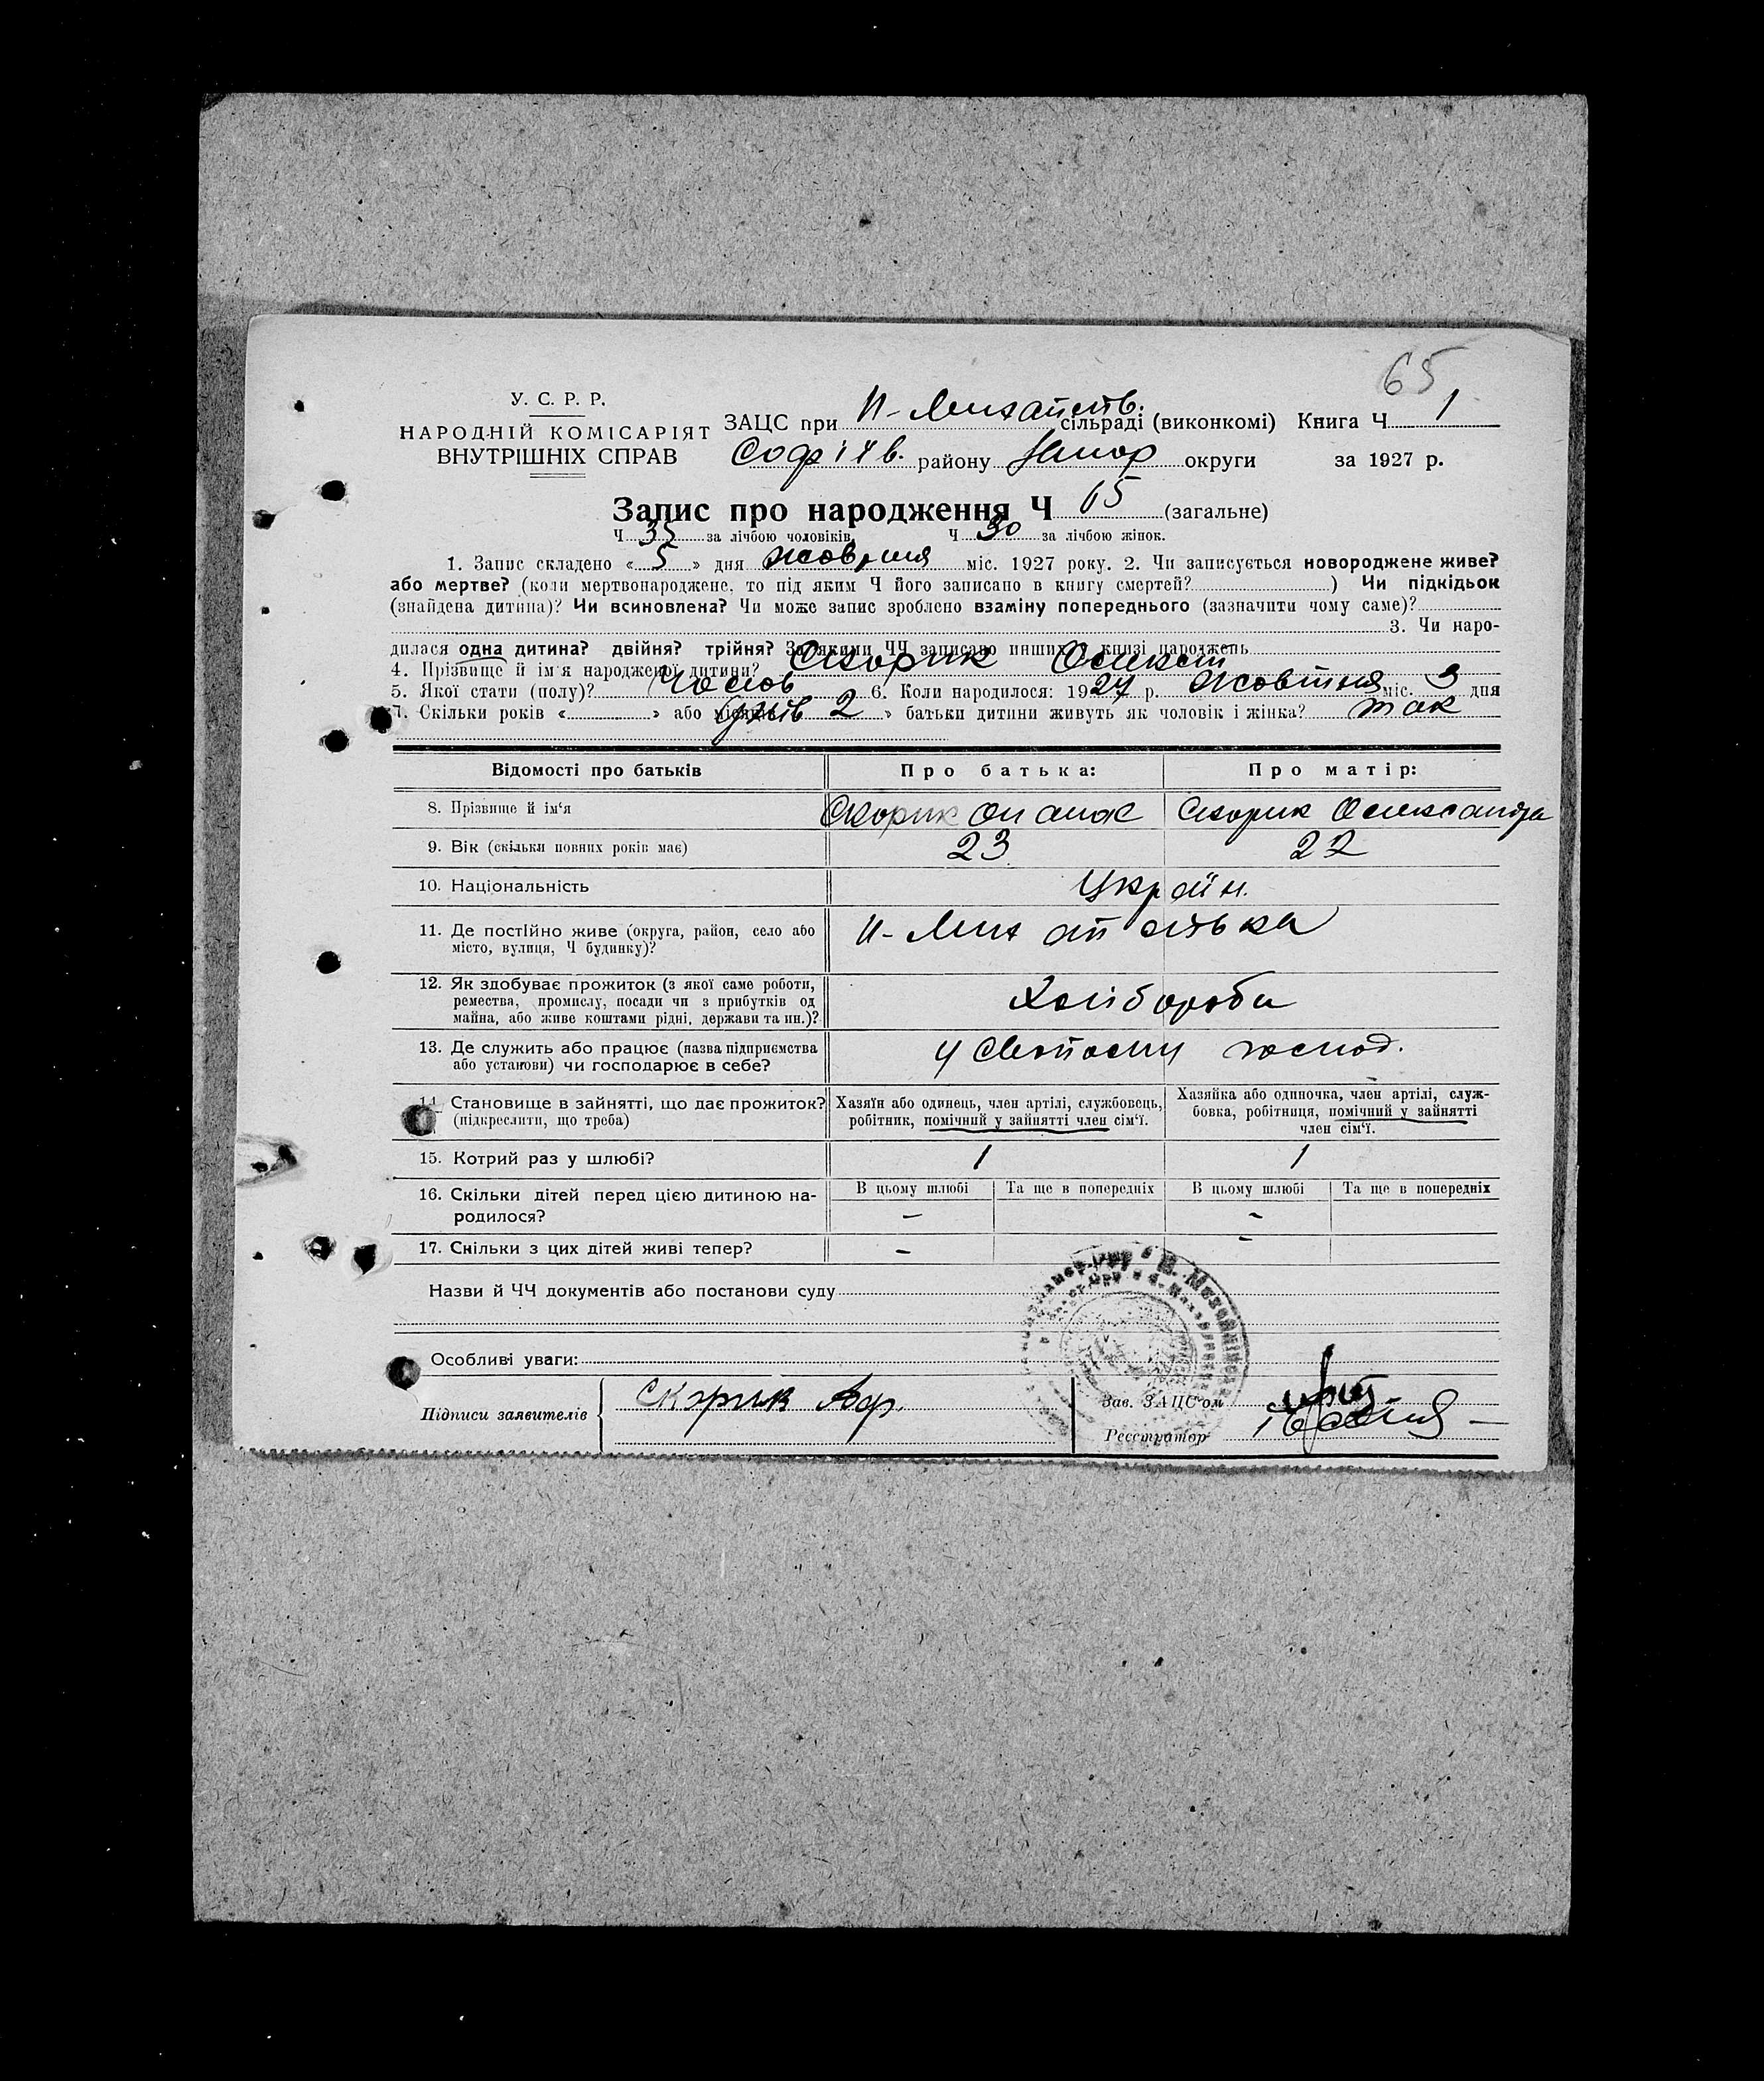 65
У. С. Р. Р.
НАРОДНІЙ КОМІСАРІЯТ
ВНУТРІШНІХ СПРАВ
ЗАЦС при сільраді (виконкомі) Книга Ч 1
Софіїв. району Запор округи за 1927 р.
Запис про народження Ч 65 (загальне)
Ч 35 за лічбою чоловіків, Ч 30 за лічбою жінок.
1. Запис складено « 5 » дня жовтня міс. 1927 року. 2. Чи записується новороджене живе?
або мертве? (коли мертвонароджене, то під яким Ч його записано в книгу смертей? ) Чи підкідьок
(знайдена дитина)? Чи всиновлена? Чи може запис зроблено взаміну попереднього (зазначити чому саме)?
3. Чи наро-
дилася одна дитина? двійня? трійня? За якими ЧЧ записано инших в книзі народжень
4. Прізвище й ім'я народженої дитини? Скорик Олексій
5. Якої стати (полу)? Чолов 6. Коли народилося: 1927 р. жовтня міс. 3 дня
7. Скільки років « » або 2 » батьки дитини живуть як чоловік і жінка? так
Відомості про батьків Про батька: Про матір:
8. Прізвище й ім'я Скорик Опанас Скорик Олександра
9. Вік (скільки повних років має) 23 22
10. Національність Україн.
11. Де постійно живе (округа, район, село або
місто, вулиця, Ч будинку)?
12. Як здобуває прожиток (з якої саме роботи,
ремества, промислу, посади чи з прибутків од
майна, або живе коштами рідні, держави та ин.)?
Хлібороби
13. Де служить або працює (назва підприємства
або установи) чи господарює в себе?
У своєму господ.
14. Становище в зайнятті, що дає прожиток?
(підкреслити, що треба)
Хазяїн або одинець, член артілі, службовець,
робітник, помічний у зайнятті член сім'ї.
Хазяйка або одиночка, член артілі, служ-
бовка, робітниця, помічний у зайнятті
член сім'ї.
15. Котрий раз у шлюбі? 1 1
16. Скільки дітей перед цією дитиною на-
родилося?
В цьому шлюбі Та ще в попередніх В цьому шлюбі Та ще в попередніх
– –
17. Скільки з цих дітей живі тепер? – –
Назви й ЧЧ документів або постанови суду
Особливі уваги:
Підписи заявителів Скорик Аф.
Зав. ЗАЦС'ом
Реєстратор